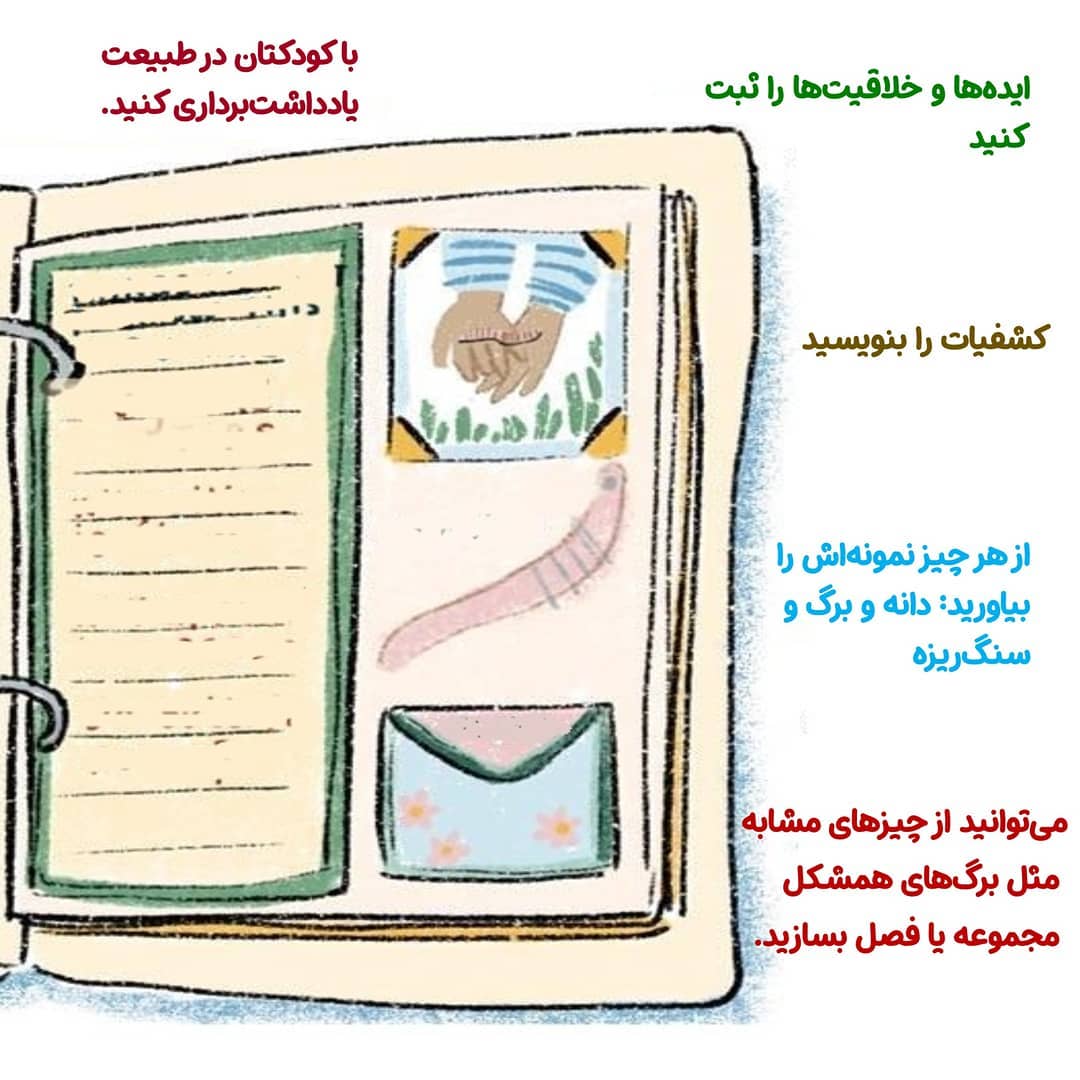 با کودکتان در طبیعت
یادداشت‌برداری کنید.
ایده‌ها و خلاقیت‌ها را ثبت
کنید
کشفیات را بنویسید
از هر چیز نمونه‌اش را
بیاورید: دانه و برگ و
سنگ‌ریزه
می‌توانید از چیزهای مشابه
مثل برگ‌های همشکل
مجموعه یا فصل بسازید.